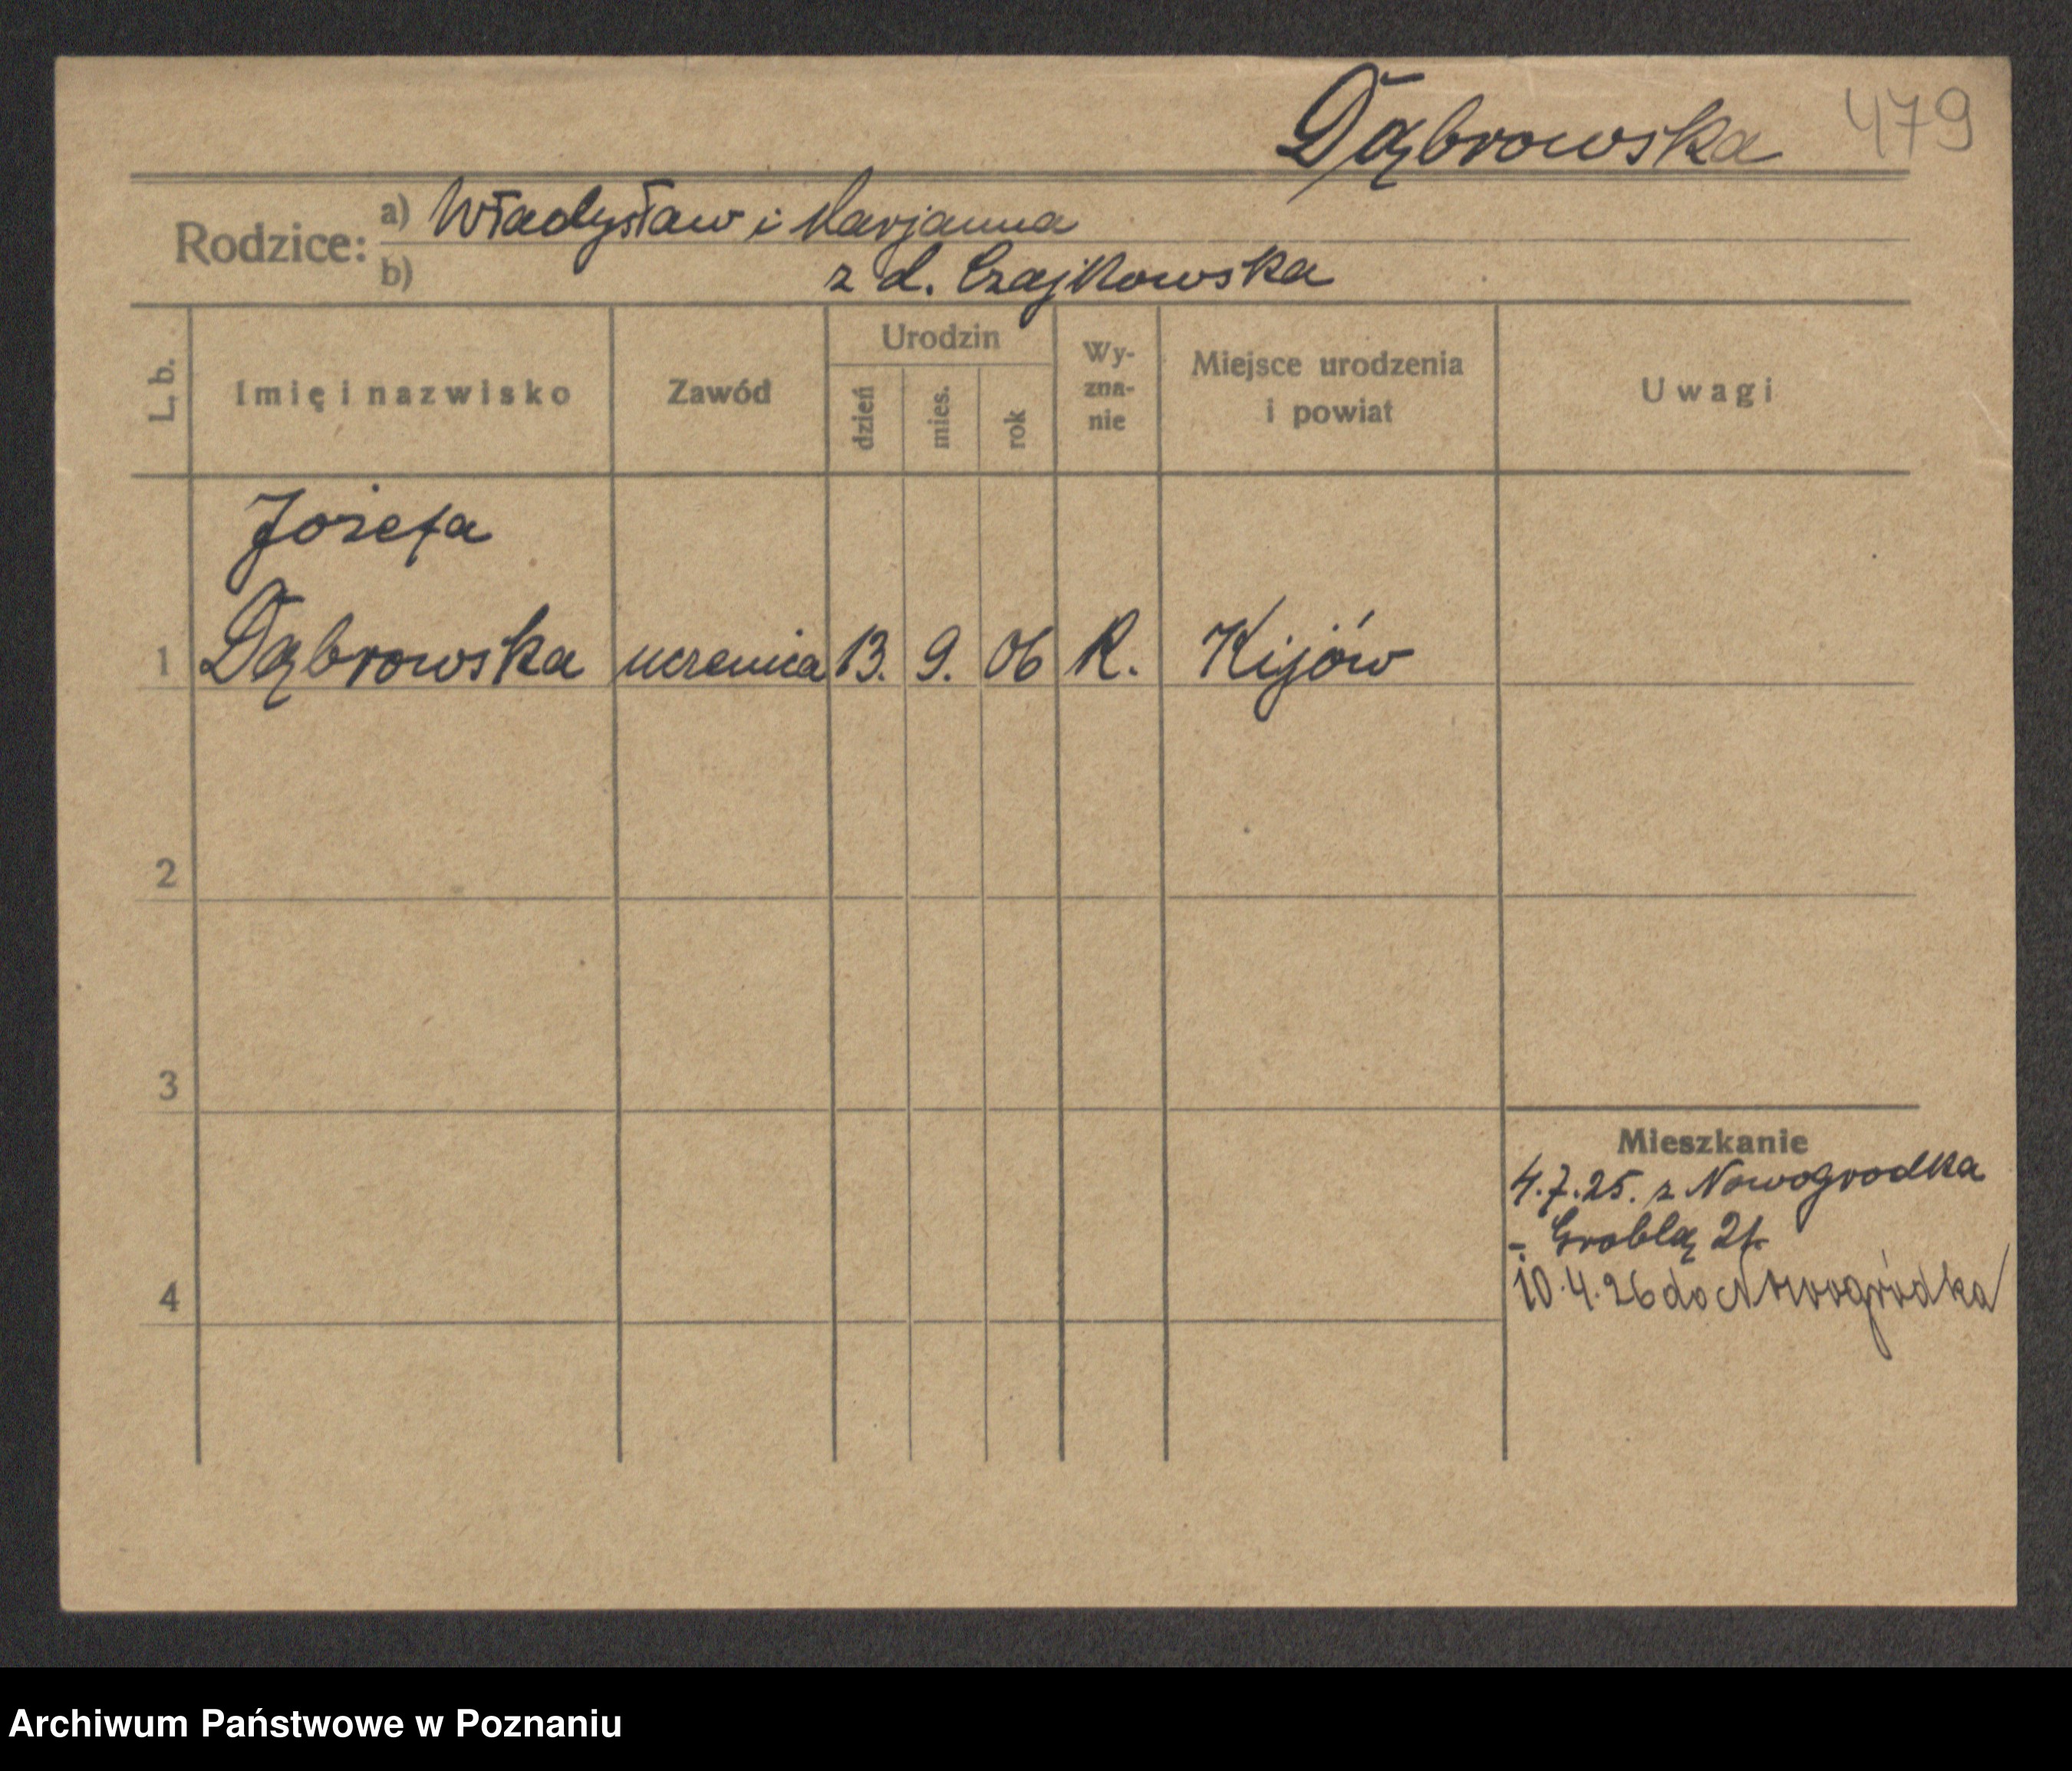 Dąbrowska 479
Rodzice: a) Władysław i Marjanna
b) z d. Czajkowska
L. b. Imię i nazwisko Zawód Urodzin dzień mies. rok Wy-zna-nie Miejsce urodzenia i powiat Uwagi
Józefa
1 Dąbrowska uczenica 13. 9. 06 R. Kijów
2
3
Mieszkanie
4.7.25. z Nowogrodka
- Groblą
4 10.4.26 do Nowogródka
Archiwum Państwowe w Poznaniu